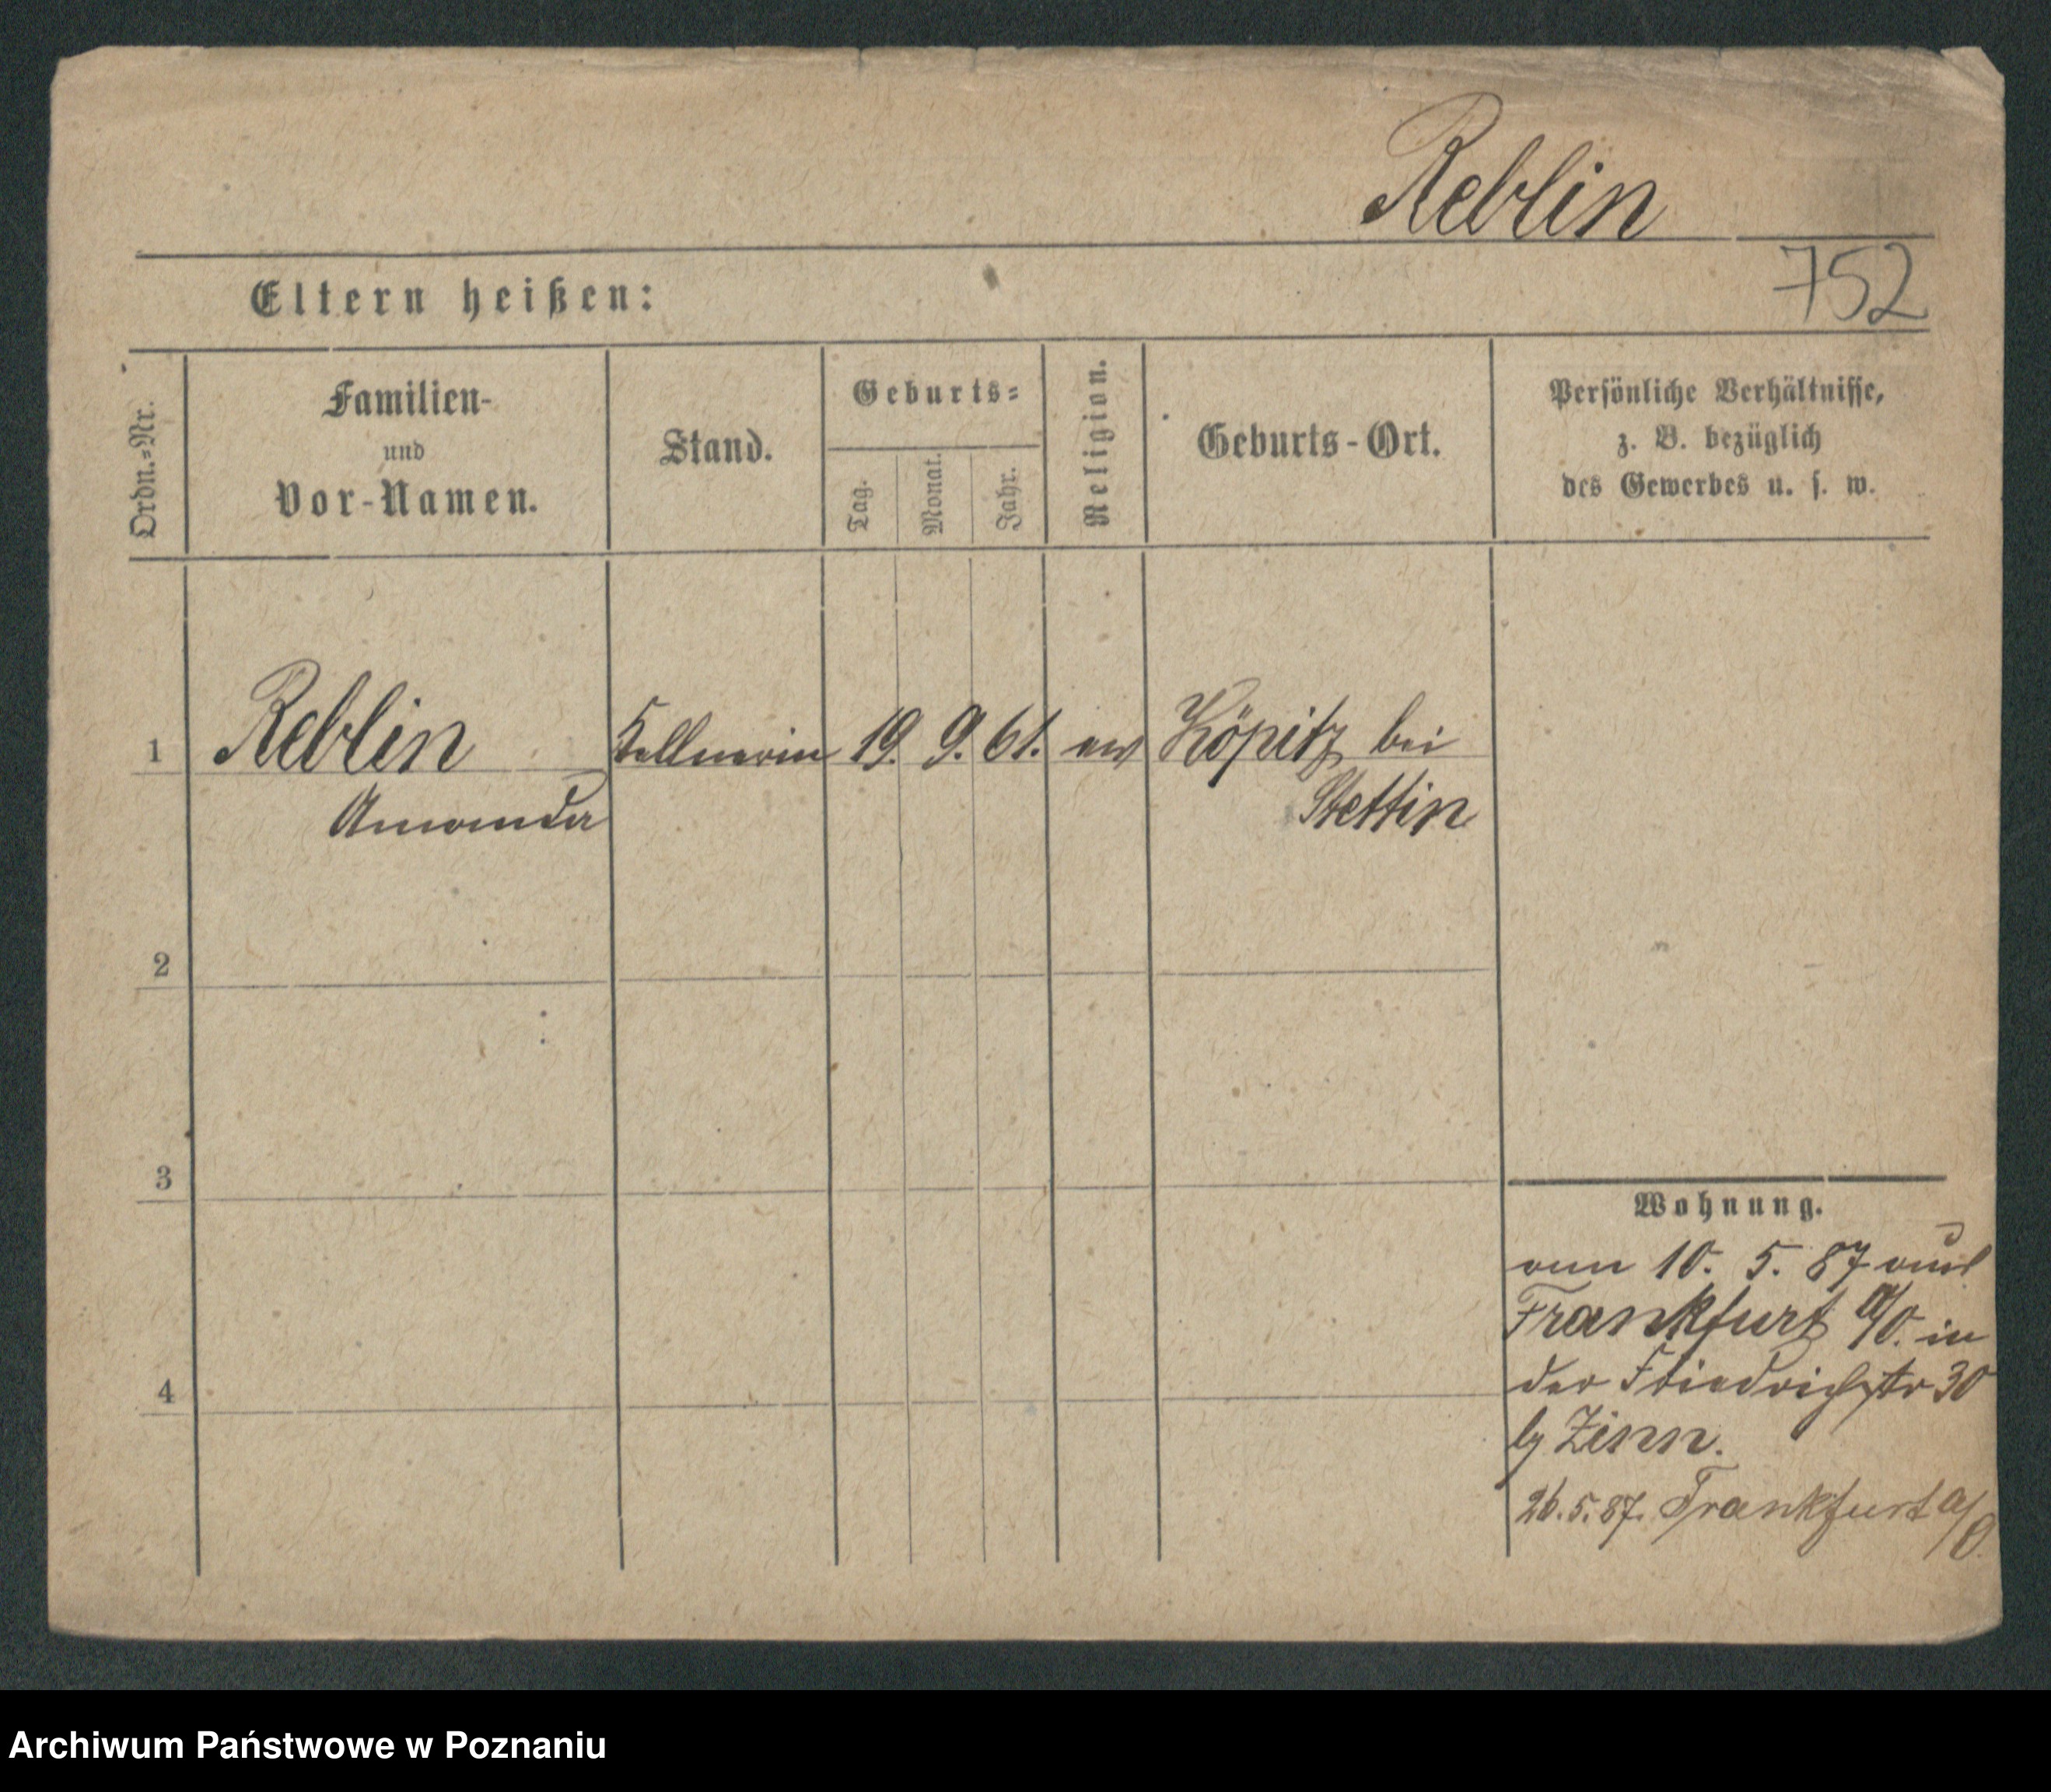 Reblin
752
Eltern heißen:
Ordn.-Nr.
Familien-
und
Vor-Namen.
Stand.
Geburts-
Tag.
Monat.
Jahr.
Religion.
Geburts-Ort.
Persönliche Verhältnisse,
z. B. bezüglich
des Gewerbes u. s. w.
1 Reblin Kellnerin 19. 9. 61. ev Köpitz bei
Amanda Stettin
2
3
4
Wohnung.
10. 5. 87 aus
Frankfurt a/O. in
der Friedrichstr 30
by Zinn.
26.5.87. Frankfurt a/O.
Archiwum Państwowe w Poznaniu